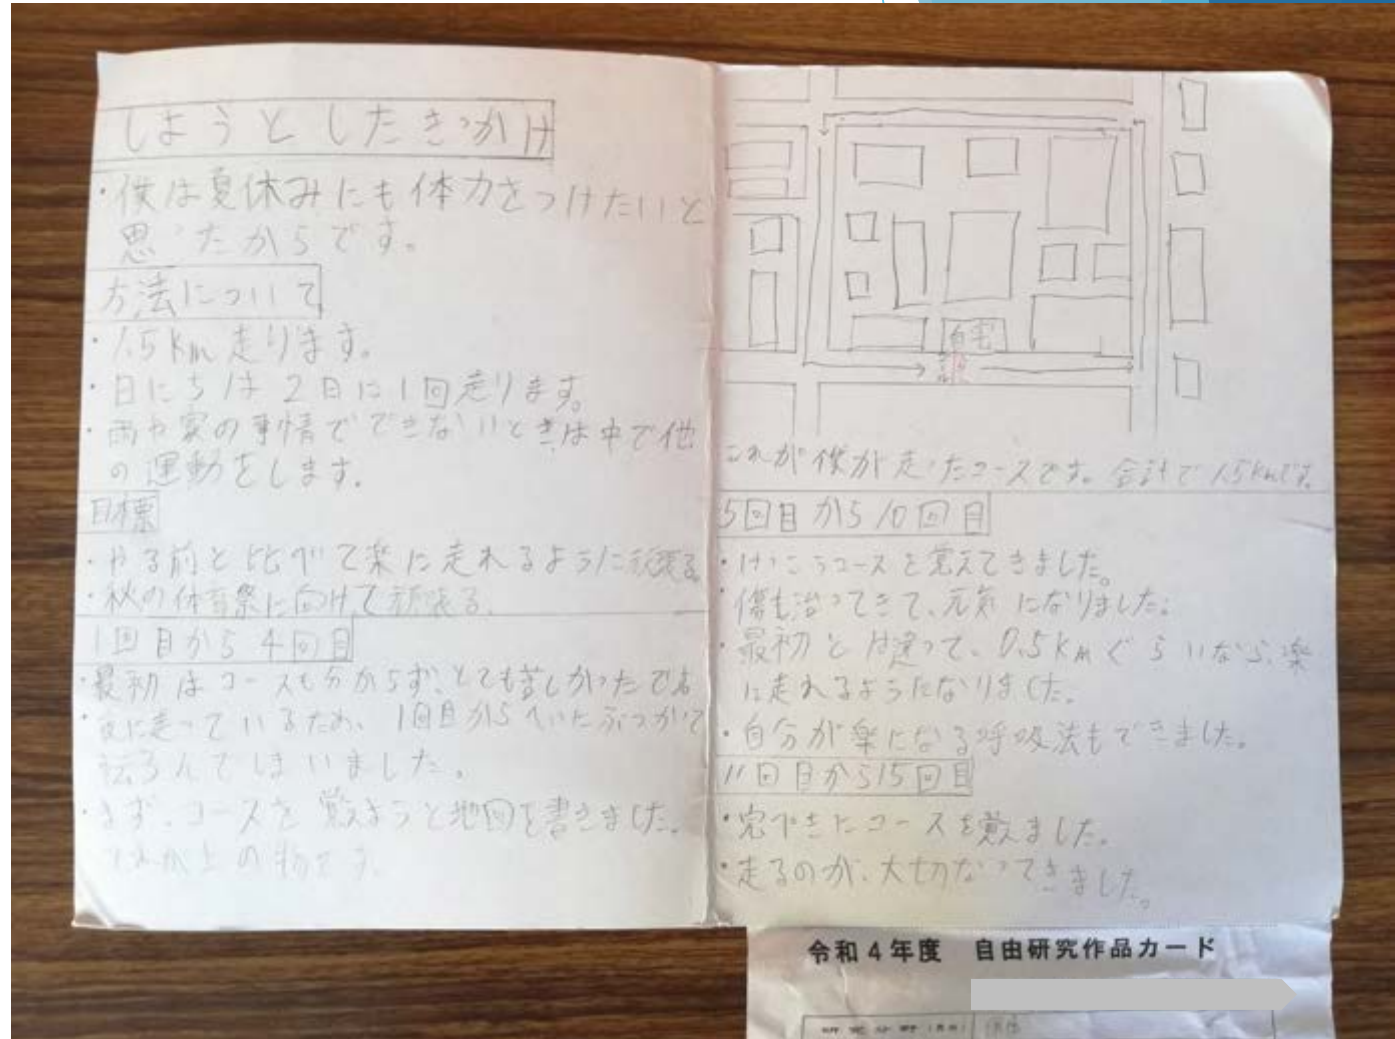 しようとしたきっかけ
・僕は夏休みにも体力をつけたいと
思ったからです。
方法について
・1.5km走ります。
・日にちは2日に1回走ります。
・雨や家の事情でできないときは中で他
の運動をします。
目標
・やる前と比べて楽に走れるように頑張る。
・秋の体育祭に向けて頑張る。
1回目から4回目
・最初はコースも分からず、とても苦しかったです
・夜に走っているため、1回目からへいにぶつかって
転ろんでしまいました。
・まず、コースを覚えようと地図を書きました。
それが上の物です。
自宅
これが僕が走ったコースです。合計で1.5kmです。
5回目から10回目
・けっこうコースを覚えてきました。
・傷も治ってきて、元気になりました。
・最初とは違って、0.5kmぐらいなら、楽
に走れるようになりました。
・自分が楽になる呼吸法もできました。
11回目から15回目
・完ぺきにコースを覚えました。
・走るのが、大切なってきました。
令和4年度 自由研究作品カード
研究分野(教科)